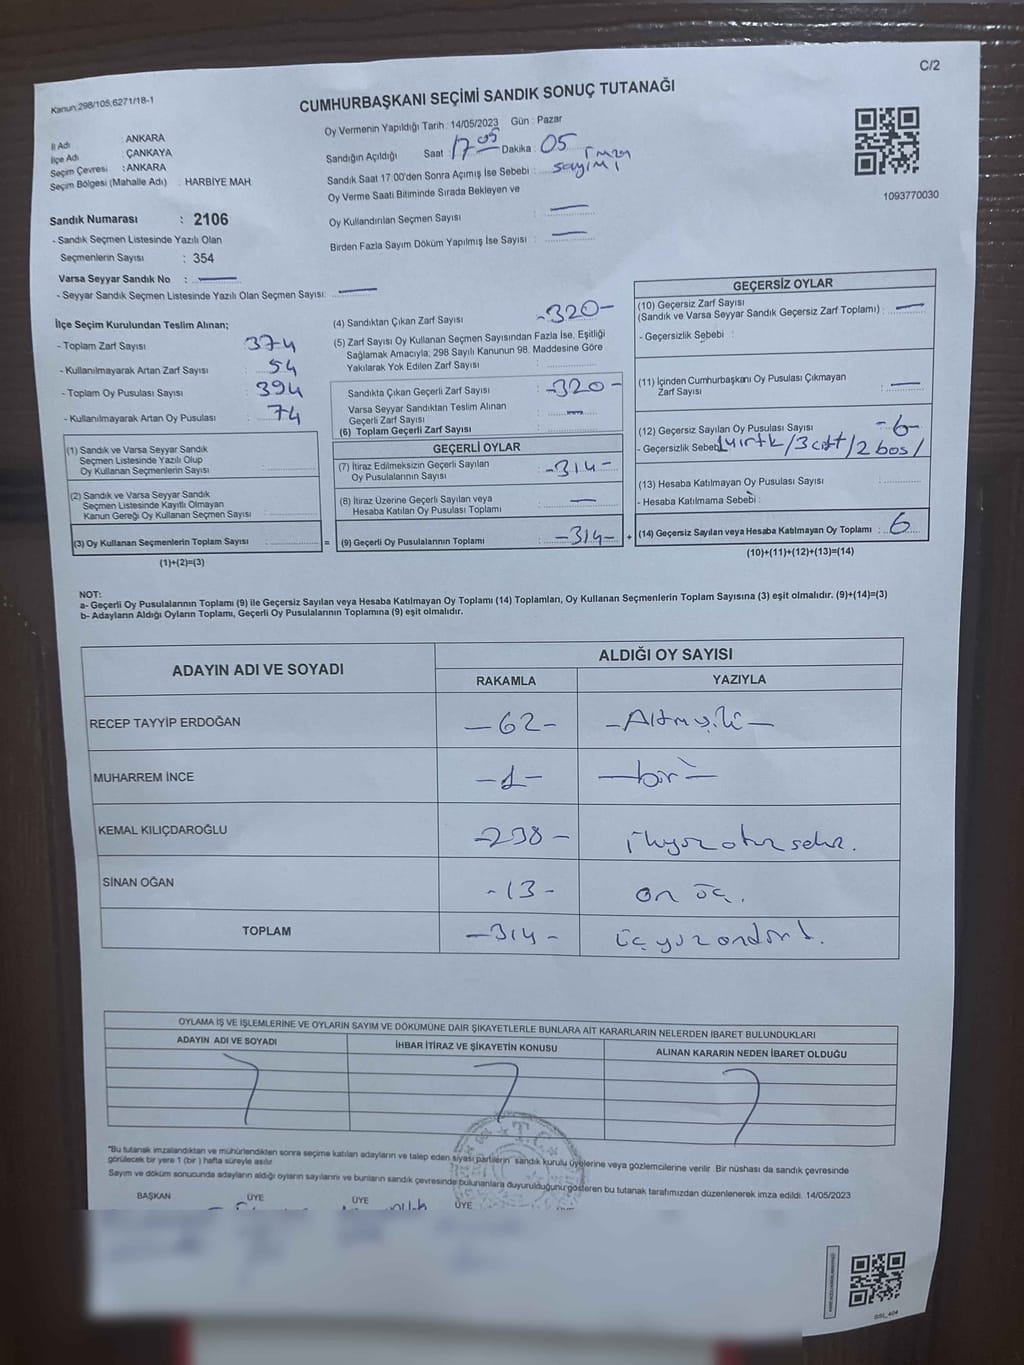 C/2
Kanun:298/105,6271/18-1
CUMHURBAŞKANI SEÇİMİ SANDIK SONUÇ TUTANAĞI
İl Adı : ANKARA
İlçe Adı : ÇANKAYA
Seçim Çevresi : ANKARA
Seçim Bölgesi (Mahalle Adı) : HARBİYE MAH.
Oy Vermenin Yapıldığı Tarih : 14/05/2023 Gün : Pazar
Sandığın Açıldığı Saat 17 05 Dakika : 05
Sandık Saat 17.00'den Sonra Açımış İse Sebebi : imza sayımı
Oy Verme Saati Bitiminde Sırada Bekleyen ve
Oy Kullandırılan Seçmen Sayısı : —
Birden Fazla Sayım Döküm Yapılmış İse Sayısı : —
1093770030
Sandık Numarası : 2106
- Sandık Seçmen Listesinde Yazılı Olan
Seçmenlerin Sayısı : 354
Varsa Seyyar Sandık No : —
- Seyyar Sandık Seçmen Listesinde Yazılı Olan Seçmen Sayısı: —
İlçe Seçim Kurulundan Teslim Alınan;
- Toplam Zarf Sayısı : 374
- Kullanılmayarak Artan Zarf Sayısı : 54
- Toplam Oy Pusulası Sayısı : 394
- Kullanılmayarak Artan Oy Pusulası : 74
(1) Sandık ve Varsa Seyyar Sandık
Seçmen Listesinde Yazılı Olup
Oy Kullanan Seçmenlerin Sayısı :
(2) Sandık ve Varsa Seyyar Sandık
Seçmen Listesinde Kayıtlı Olmayan
Kanun Gereği Oy Kullanan Seçmen Sayısı :
(3) Oy Kullanan Seçmenlerin Toplam Sayısı : =
(1)+(2)=(3)
(4) Sandıktan Çıkan Zarf Sayısı : -320-
(5) Zarf Sayısı Oy Kullanan Seçmen Sayısından Fazla İse, Eşitliği
Sağlamak Amacıyla; 298 Sayılı Kanunun 98. Maddesine Göre
Yakılarak Yok Edilen Zarf Sayısı :
Sandıkta Çıkan Geçerli Zarf Sayısı : -320-
Varsa Seyyar Sandıktan Teslim Alınan
Geçerli Zarf Sayısı : —
(6) Toplam Geçerli Zarf Sayısı :
GEÇERLİ OYLAR
(7) İtiraz Edilmeksizin Geçerli Sayılan
Oy Pusulalarının Sayısı : -314-
(8) İtiraz Üzerine Geçerli Sayılan veya
Hesaba Katılan Oy Pusulası Toplamı : —
(9) Geçerli Oy Pusulalarının Toplamı : -314- +
GEÇERSİZ OYLAR
(10) Geçersiz Zarf Sayısı
(Sandık ve Varsa Seyyar Sandık Geçersiz Zarf Toplamı) : —
- Geçersizlik Sebebi :
(11) İçinden Cumhurbaşkanı Oy Pusulası Çıkmayan
Zarf Sayısı : —
(12) Geçersiz Sayılan Oy Pusulası Sayısı : -6-
- Geçersizlik Sebebi 1 yırtık/3 çift/2 boş/
(13) Hesaba Katılmayan Oy Pusulası Sayısı :
- Hesaba Katılmama Sebebi :
(14) Geçersiz Sayılan veya Hesaba Katılmayan Oy Toplamı : 6
(10)+(11)+(12)+(13)=(14)
NOT:
a- Geçerli Oy Pusulalarının Toplamı (9) ile Geçersiz Sayılan veya Hesaba Katılmayan Oy Toplamı (14) Toplamları, Oy Kullanan Seçmenlerin Toplam Sayısına (3) eşit olmalıdır. (9)+(14)=(3)
b- Adayların Aldığı Oyların Toplamı, Geçerli Oy Pusulalarının Toplamına (9) eşit olmalıdır.
ADAYIN ADI VE SOYADI ALDIĞI OY SAYISI
RAKAMLA YAZIYLA
RECEP TAYYİP ERDOĞAN -62- -Altmışiki-
MUHARREM İNCE -1- -bir-
KEMAL KILIÇDAROĞLU -238- ikiyüz otuz sekiz.
SİNAN OĞAN -13- on üç.
TOPLAM -314- üç yüz ondört.
OYLAMA İŞ VE İŞLEMLERİNE VE OYLARIN SAYIM VE DÖKÜMÜNE DAİR ŞİKAYETLERLE BUNLARA AİT KARARLARIN NELERDEN İBARET BULUNDUKLARI
ADAYIN ADI VE SOYADI İHBAR İTİRAZ VE ŞİKAYETİN KONUSU ALINAN KARARIN NEDEN İBARET OLDUĞU
T.C.
*Bu tutanak imzalandıktan ve mühürlendikten sonra seçime katılan adayların ve talep eden siyasi partilerin sandık kurulu üyelerine veya gözlemcilerine verilir. Bir nüshası da sandık çevresinde
görülecek bir yere 1 (bir) hafta süreyle asılır.
Sayım ve döküm sonucunda adayların aldığı oyların sayılarını ve bunların sandık çevresinde bulunanlara duyurulduğunu gösteren bu tutanak tarafımızdan düzenlenerek imza edildi. 14/05/2023
BAŞKAN ÜYE ÜYE ÜYE
SSI_404